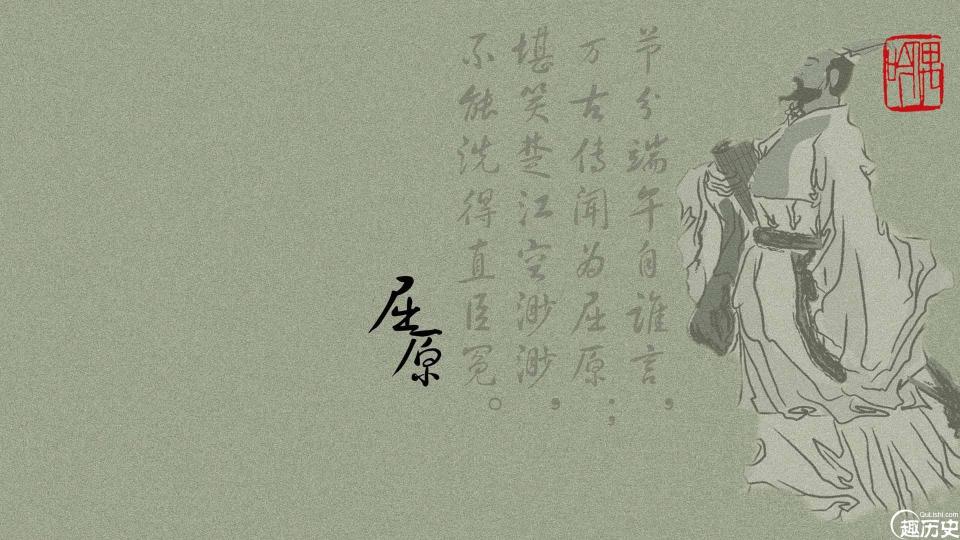 节分端午自谁言，
万古传闻为屈原；
堪笑楚江空渺渺，
不能洗得直臣冤。
屈原
偶吟
QuLishi.com
趣历史